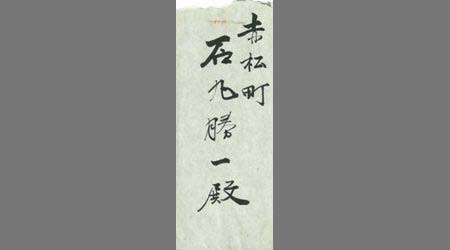 赤松町
石丸勝一殿